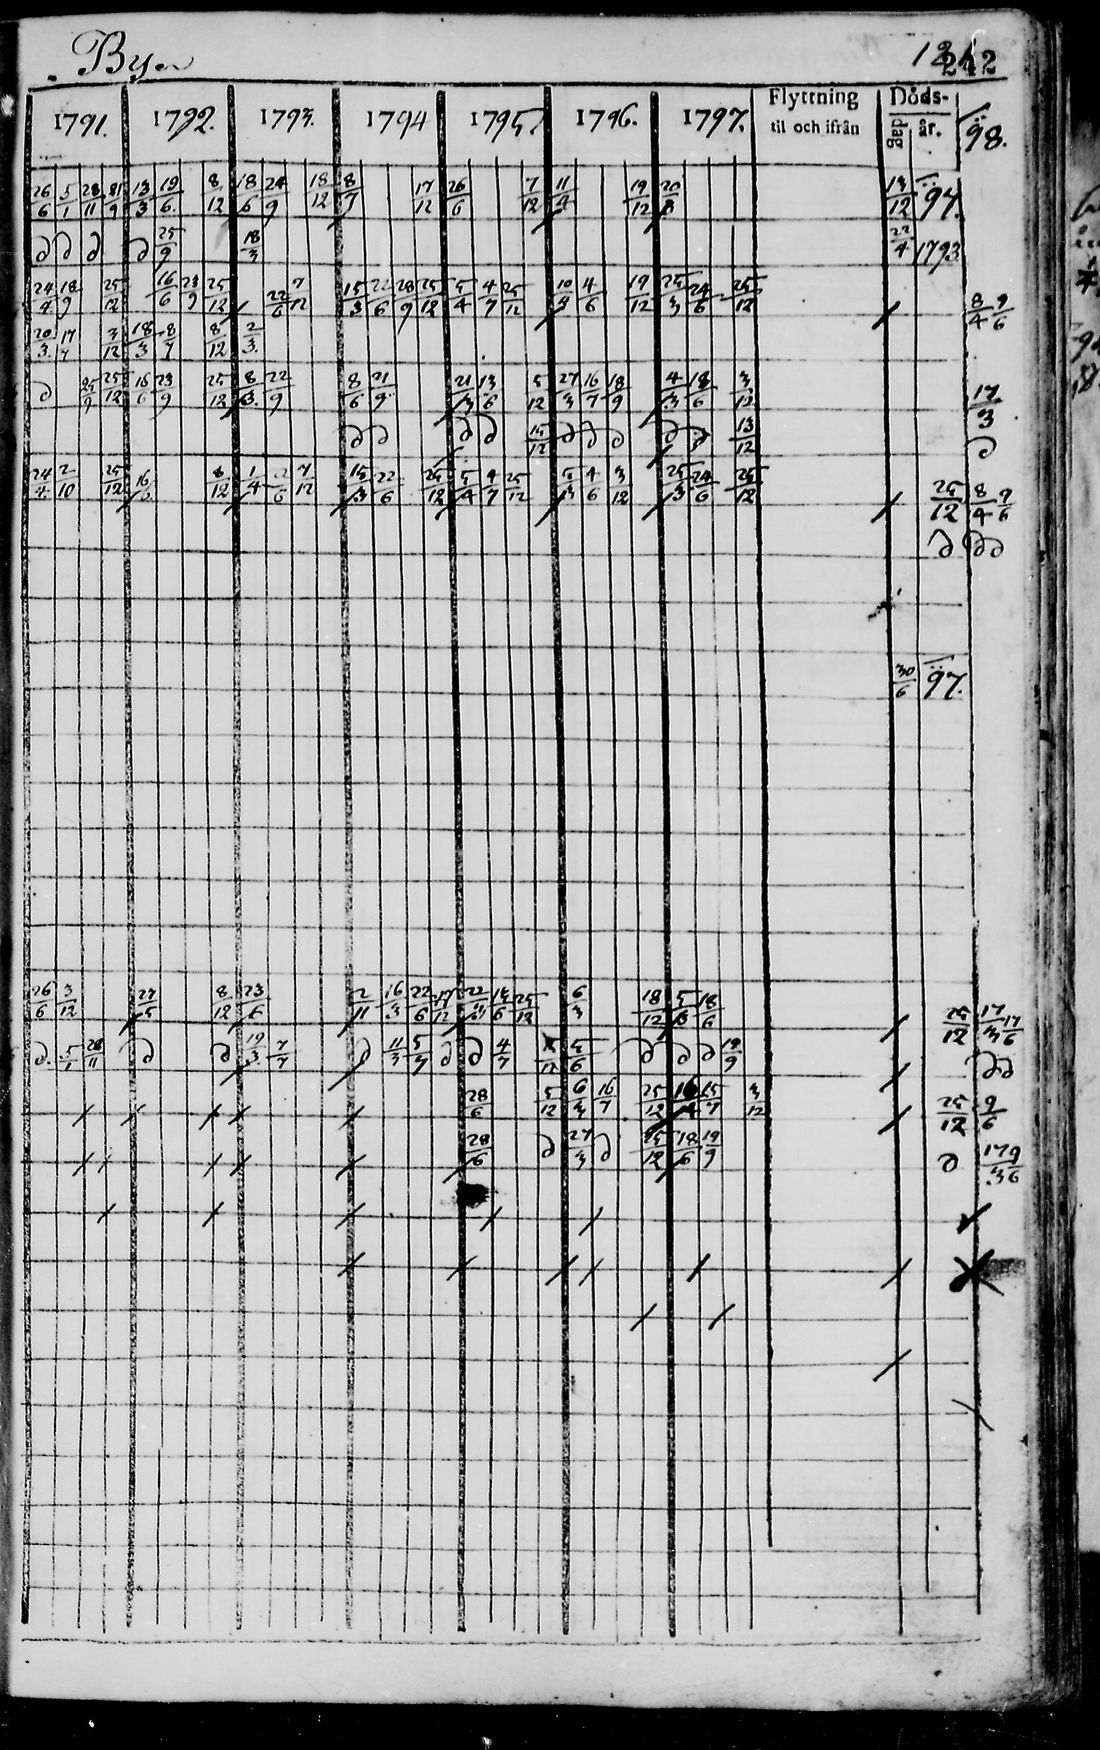 By
242
1791. 1792. 1793. 1794 1795. 1796. 1797. Flyttning til och ifrån Döds- dag år. 98.
26/6 5/1 28/11 13/3 19/6 8/12 18/6 29/9 18/12 8/7 17/12 26/6 7/12 11/9 19/12 13/12 97.
∂ ∂ ∂ ∂ 25/9 18/3 22/4 1793
24/4 18/9 25/12 16/6 23/9 25/12 22/6 7/12 15/3 22/6 28/9 25/12 5/4 4/7 25/12 10/3 4/6 19/12 25/3 24/6 25/12 8/4 9/6
20/3 17/7 3/12 18/3 8/7 8/12 2/3
∂ 25/9 25/12 16/6 23/9 25/12 8/3 22/9 8/6 21/9 21/3 13/6 5/12 27/3 16/7 18/9 4/3 18/6 3/12 17/3
∂ ∂ ∂ ∂ 15/12 ∂ ∂ ∂ ∂ ∂ 13/12 ∂
24/4 2/10 25/12 16/6 8/12 1/4 2/6 7/12 15/3 22/6 25/12 5/4 4/7 25/12 5/3 4/6 3/12 25/3 24/6 25/12 25/12 8/4 9/6
∂ ∂ ∂
30/6 97.
26/6 3/12 27/5 8/12 23/6 2/11 16/3 22/6 17/12 22/3 14/6 25/12 6/3 18/12 5/3 18/6 25/12 17/3 17/6
∂ 5/1 28/11 ∂ ∂ 19/3 7/7 ∂ 11/3 5/7 ∂ ∂ 4/7 5/6 ∂ ∂ ∂ 19/9 ∂ ∂
28/6 5/12 6/3 16/7 25/12 15/7 3/12 25/12 9/6
28/6 ∂ 27/3 ∂ 25/12 18/6 19/9 ∂ 17/3 9/6